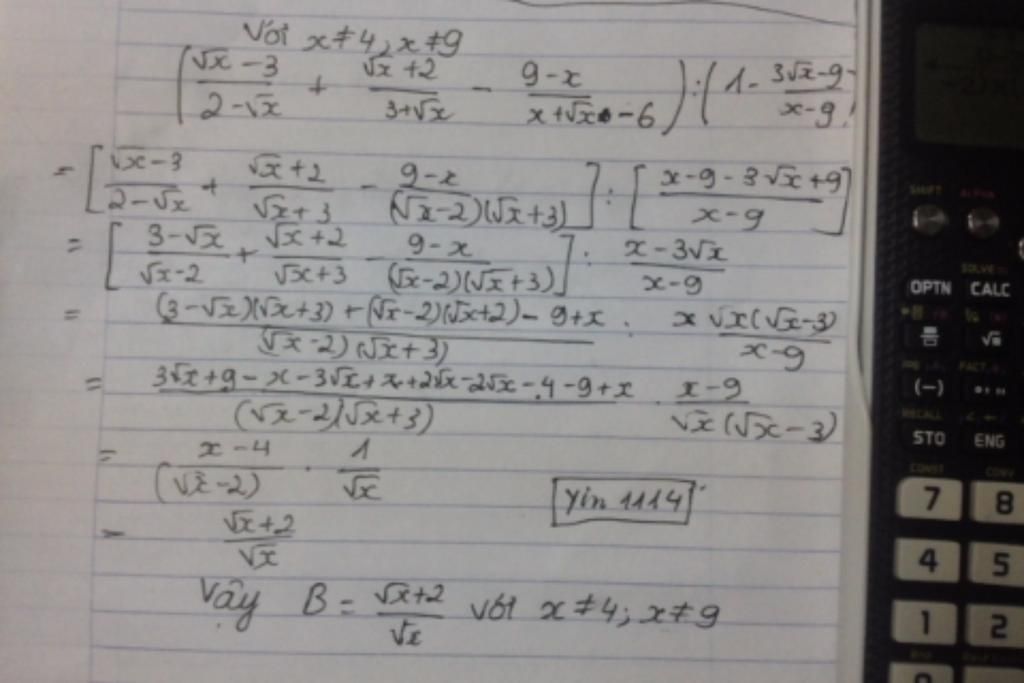 Với x≠4, x≠9
(√x-3/2-√x + √x+2/3+√x - 9-x/x+√x-6) : (1 - 3√x-9/x-9)
= [√x-3/2-√x + √x+2/√x+3 - 9-x/(√x-2)(√x+3)] : [x-9-3√x+9/x-9]
= [3-√x/√x-2 + √x+2/√x+3 - 9-x/(√x-2)(√x+3)] : x-3√x/x-9
= (3-√x)(√x+3)+(√x-2)(√x+2)-9+x/(√x-2)(√x+3) : x √x(√x-3)/x-9
= 3√x+9-x-3√x+x+2√x-2√x-4-9+x/(√x-2)(√x+3) . x-9/√x(√x-3)
= x-4/(√x-2) . 1/√x
Yin 1114
= √x+2/√x
Vậy B = √x+2/√x với x≠4; x≠9
SHIFT ALPHA
SOLVE=
OPTN CALC
√
(-) °,,,
RECALL
STO ENG
CONST CONV
7 8
4 5
1 2
0